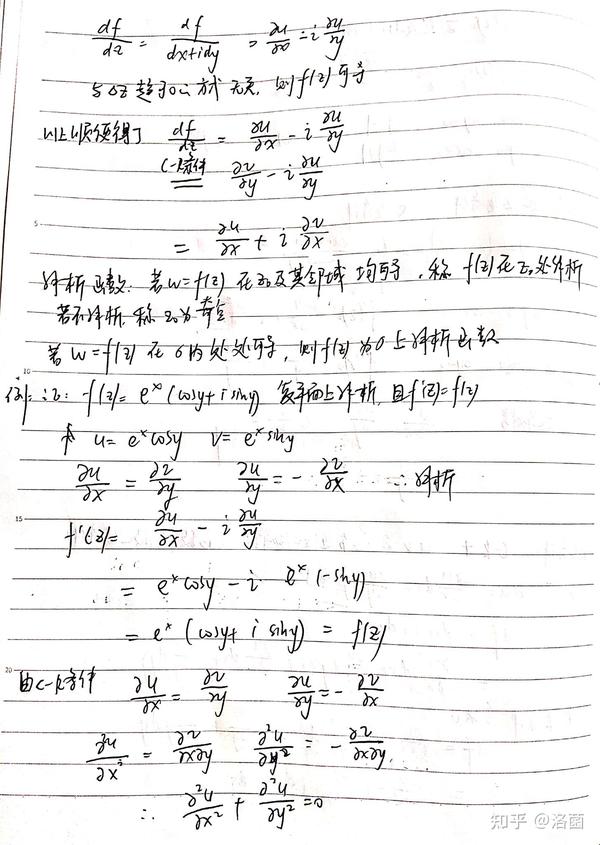 df/dz = df/(dx+idy) = ∂u/∂x - i ∂u/∂y
与Δz趋于0的方式无关, 则f(z)可导
以上顺便得了 df/dz = ∂u/∂x - i ∂u/∂y
C-R条件 ∂v/∂y - i ∂u/∂y
= ∂u/∂x + i ∂v/∂x
解析函数: 若w=f(z) 在z₀及其邻域均可导, 称 f(z)在z₀处解析
若不解析, 称z₀为奇点
若w=f(z) 在σ内处处可导, 则f(z)为σ上解析函数
例: 证: f(z)= eˣ(cosy+isiny) 复平面上解析, 且f'(z)=f(z)
u= eˣcosy v= eˣsiny
∂u/∂x = ∂v/∂y ∂u/∂y = - ∂v/∂x ∴解析
f'(z)= ∂u/∂x - i ∂u/∂y
= eˣcosy - i eˣ(-siny)
= eˣ(cosy+ i siny) = f(z)
由C-R条件 ∂u/∂x = ∂v/∂y ∂u/∂y = - ∂v/∂x
∂²u/∂x² = ∂²v/∂x∂y ∂²u/∂y² = - ∂²v/∂x∂y
∴ ∂²u/∂x² + ∂²u/∂y² =0
5
10
15
20
知乎 @洛菌